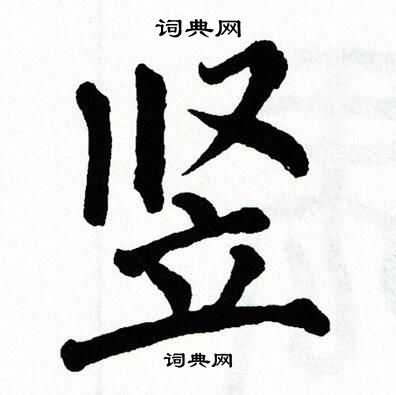 词典网
竖
词典网